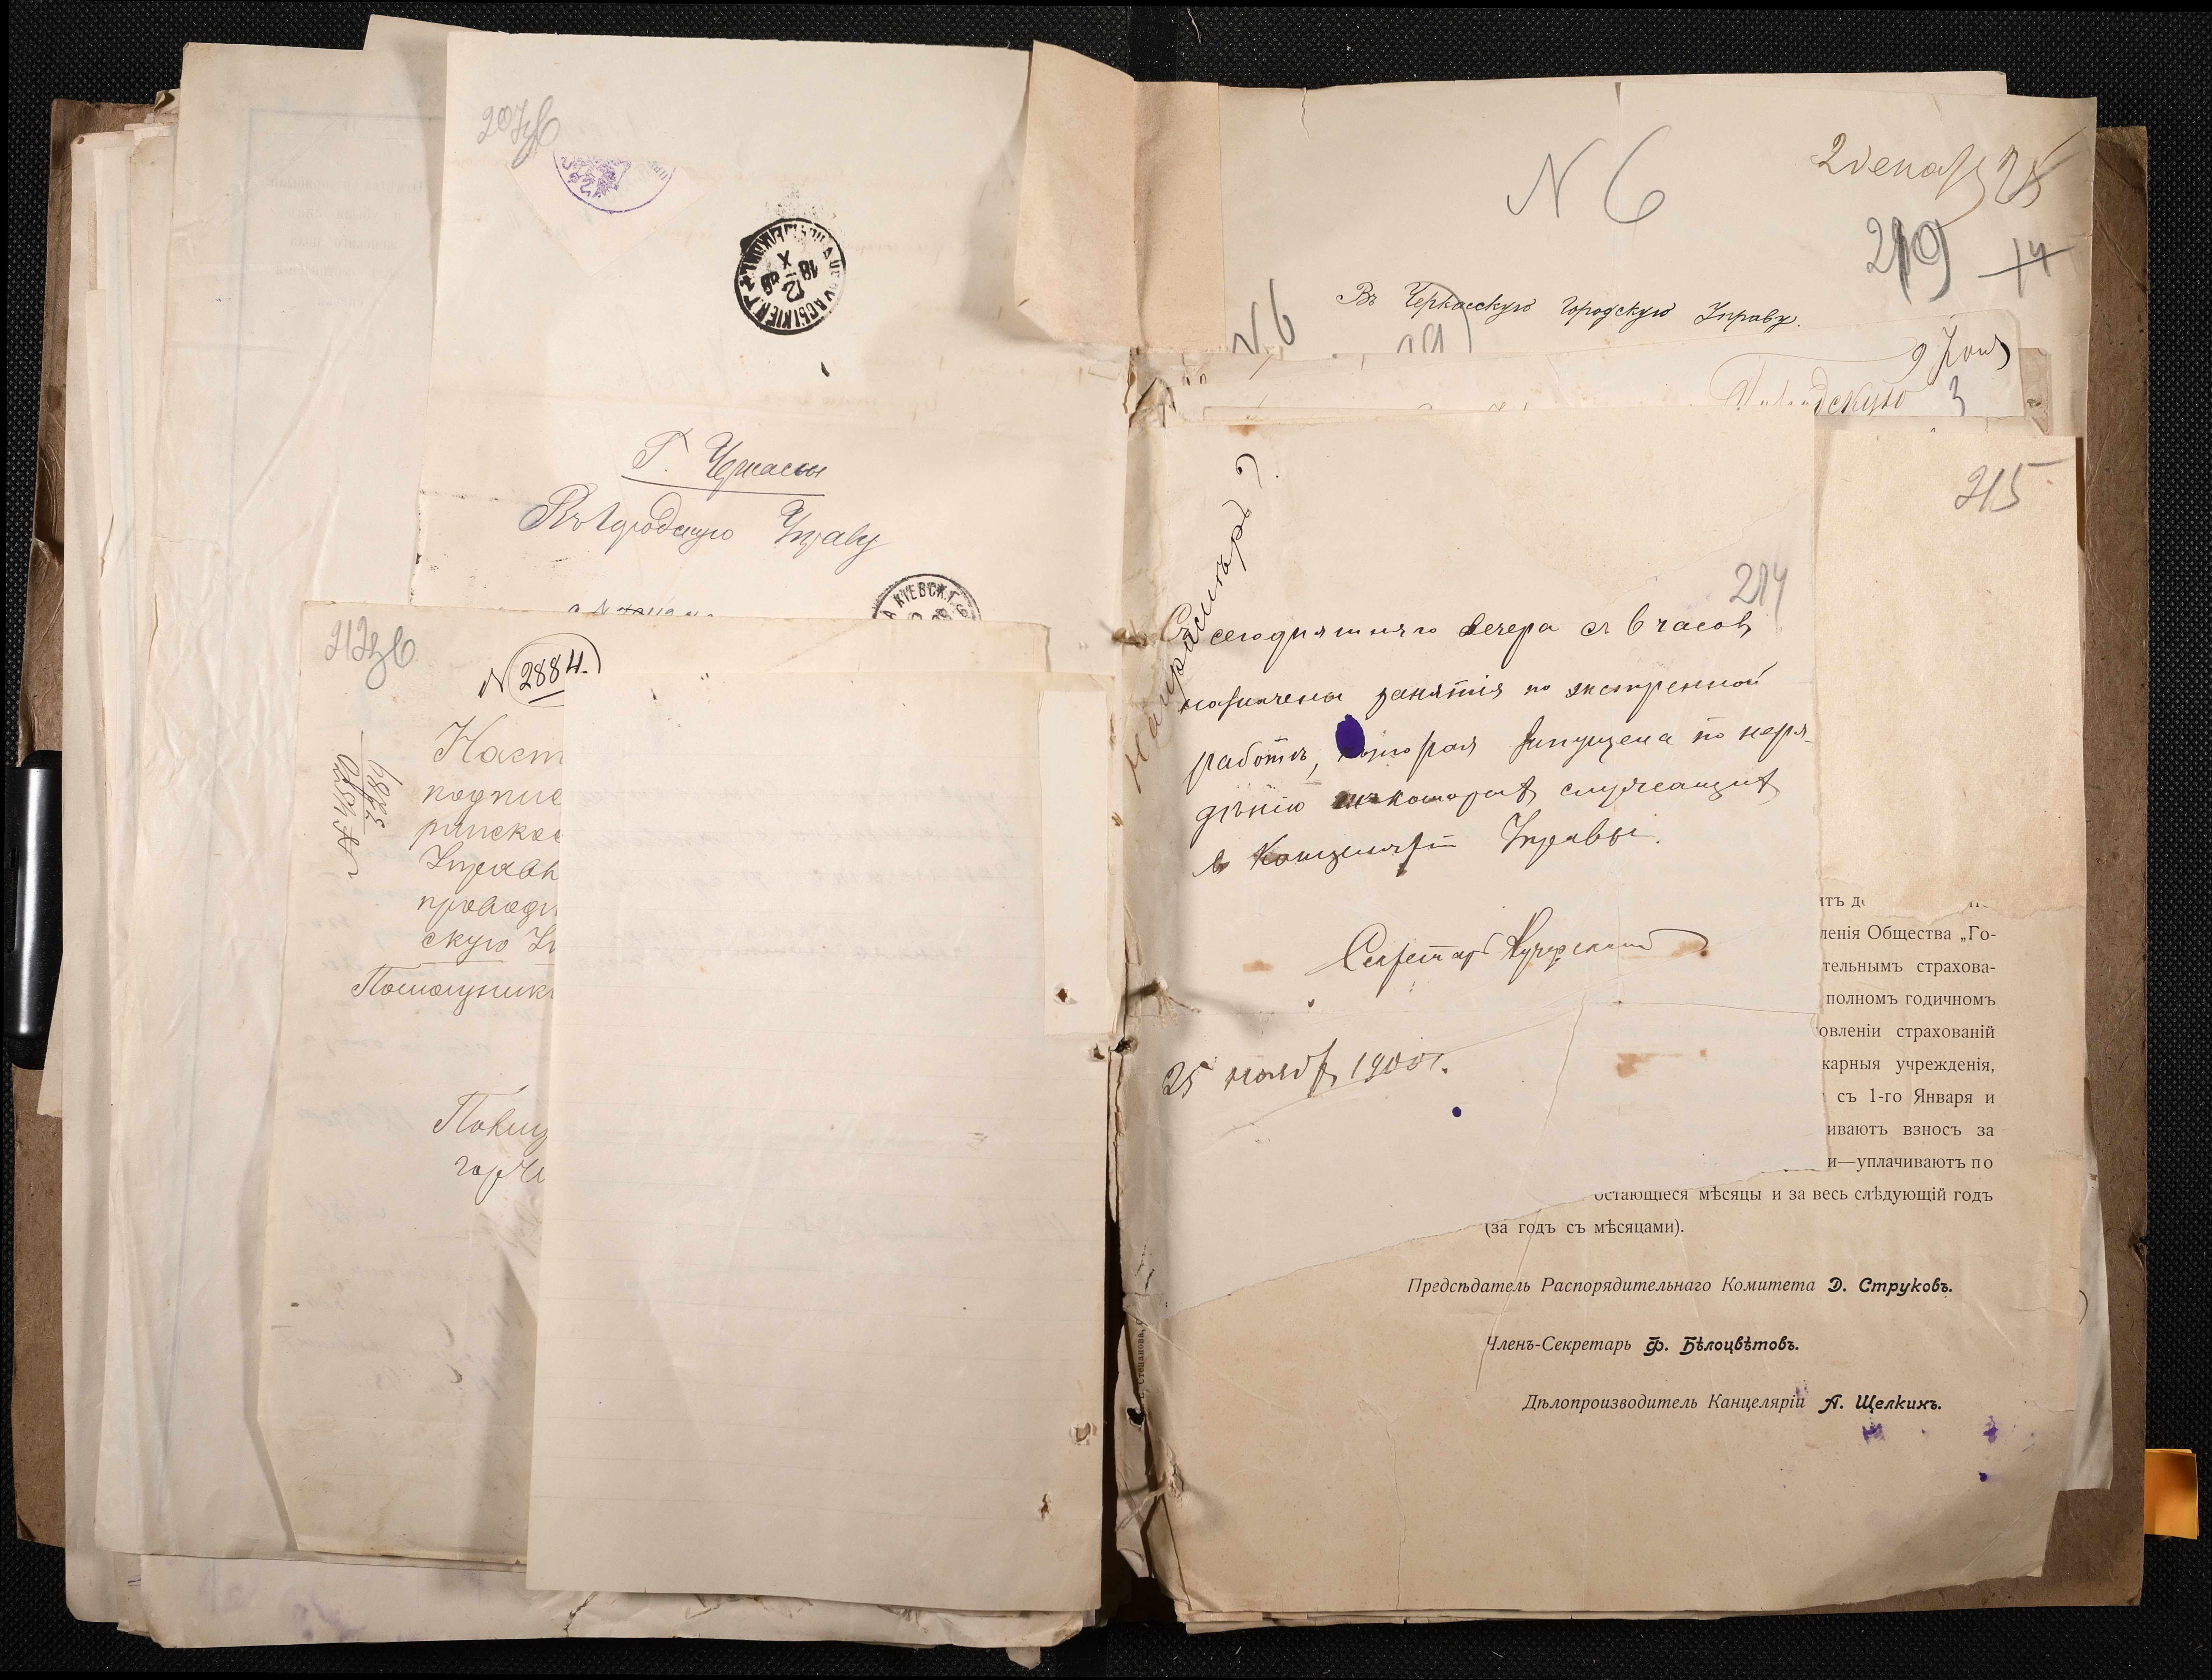 207об
Г. Черкассы
Въ Городскую Управу
212об
N 2884.
Наст
подпис
ринско
Управ
провод
скую Уп
Помощникъ
N 6
219
Въ Черкасскую Городскую Управу.
N 6
Городскую
3
215
214
Съ сегодняшняго вечера съ 6 часовъ
назначены занятія по экстренной
работѣ, которая запущена по нера-
дѣнію нѣкоторыхъ служащихъ
въ Канцеляріи Управы.
Секретарь
25 ноября 1900 г.
ленія Общества „Го-
тельнымъ страхова-
полномъ годичномъ
овленіи страхованій
карныя учрежденія,
съ 1-го Января и
иваютъ взносъ за
и—уплачиваютъ по
остающіеся мѣсяцы и за весь слѣдующій годъ
(за годъ съ мѣсяцами).
Предсѣдатель Распорядительнаго Комитета Д. Струковъ.
Членъ-Секретарь Ф. Бѣлоцвѣтовъ.
Дѣлопроизводитель Канцеляріи А. Щелкинъ.